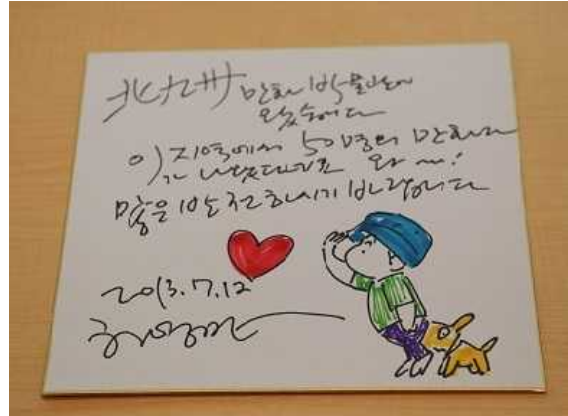 北九州 만화 박물관에
왔습니다
이 지역에서 50명의 만화가
가 나왔다구요 와~!
많은 발전하시기 바랍니다
2013.7.12